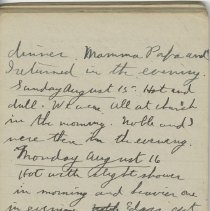 dinner. Mamma Papa and
I returned in the evening.
Sunday August 15th. Hot and
dull. We were all at church
in the morning. Noble and I
were there in the evening.
Monday August 16
Hot with a light shower
in morning and heavier one
in evening.